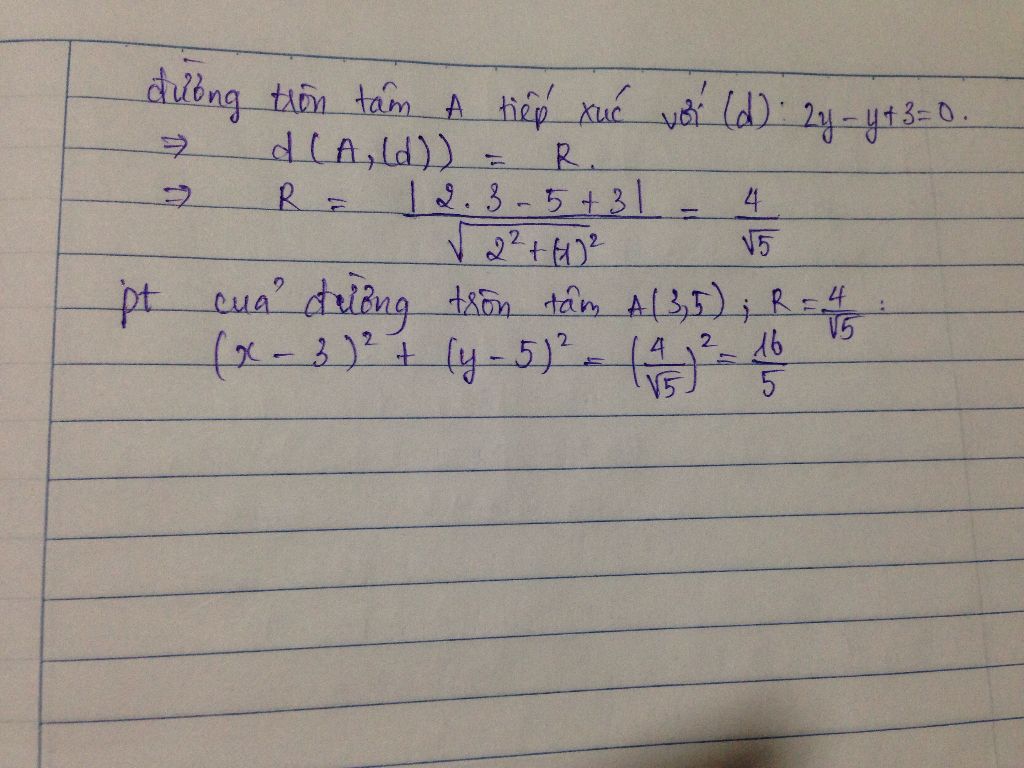 đường tròn tâm A tiếp xúc với (d): 2y - y + 3 = 0.
⇒ d(A,(d)) = R.
⇒ R = |2.3 - 5 + 3| / √(2² + (-1)²) = 4/√5
pt của đường tròn tâm A(3,5); R = 4/√5 :
(x - 3)² + (y - 5)² = (4/√5)² = 16/5